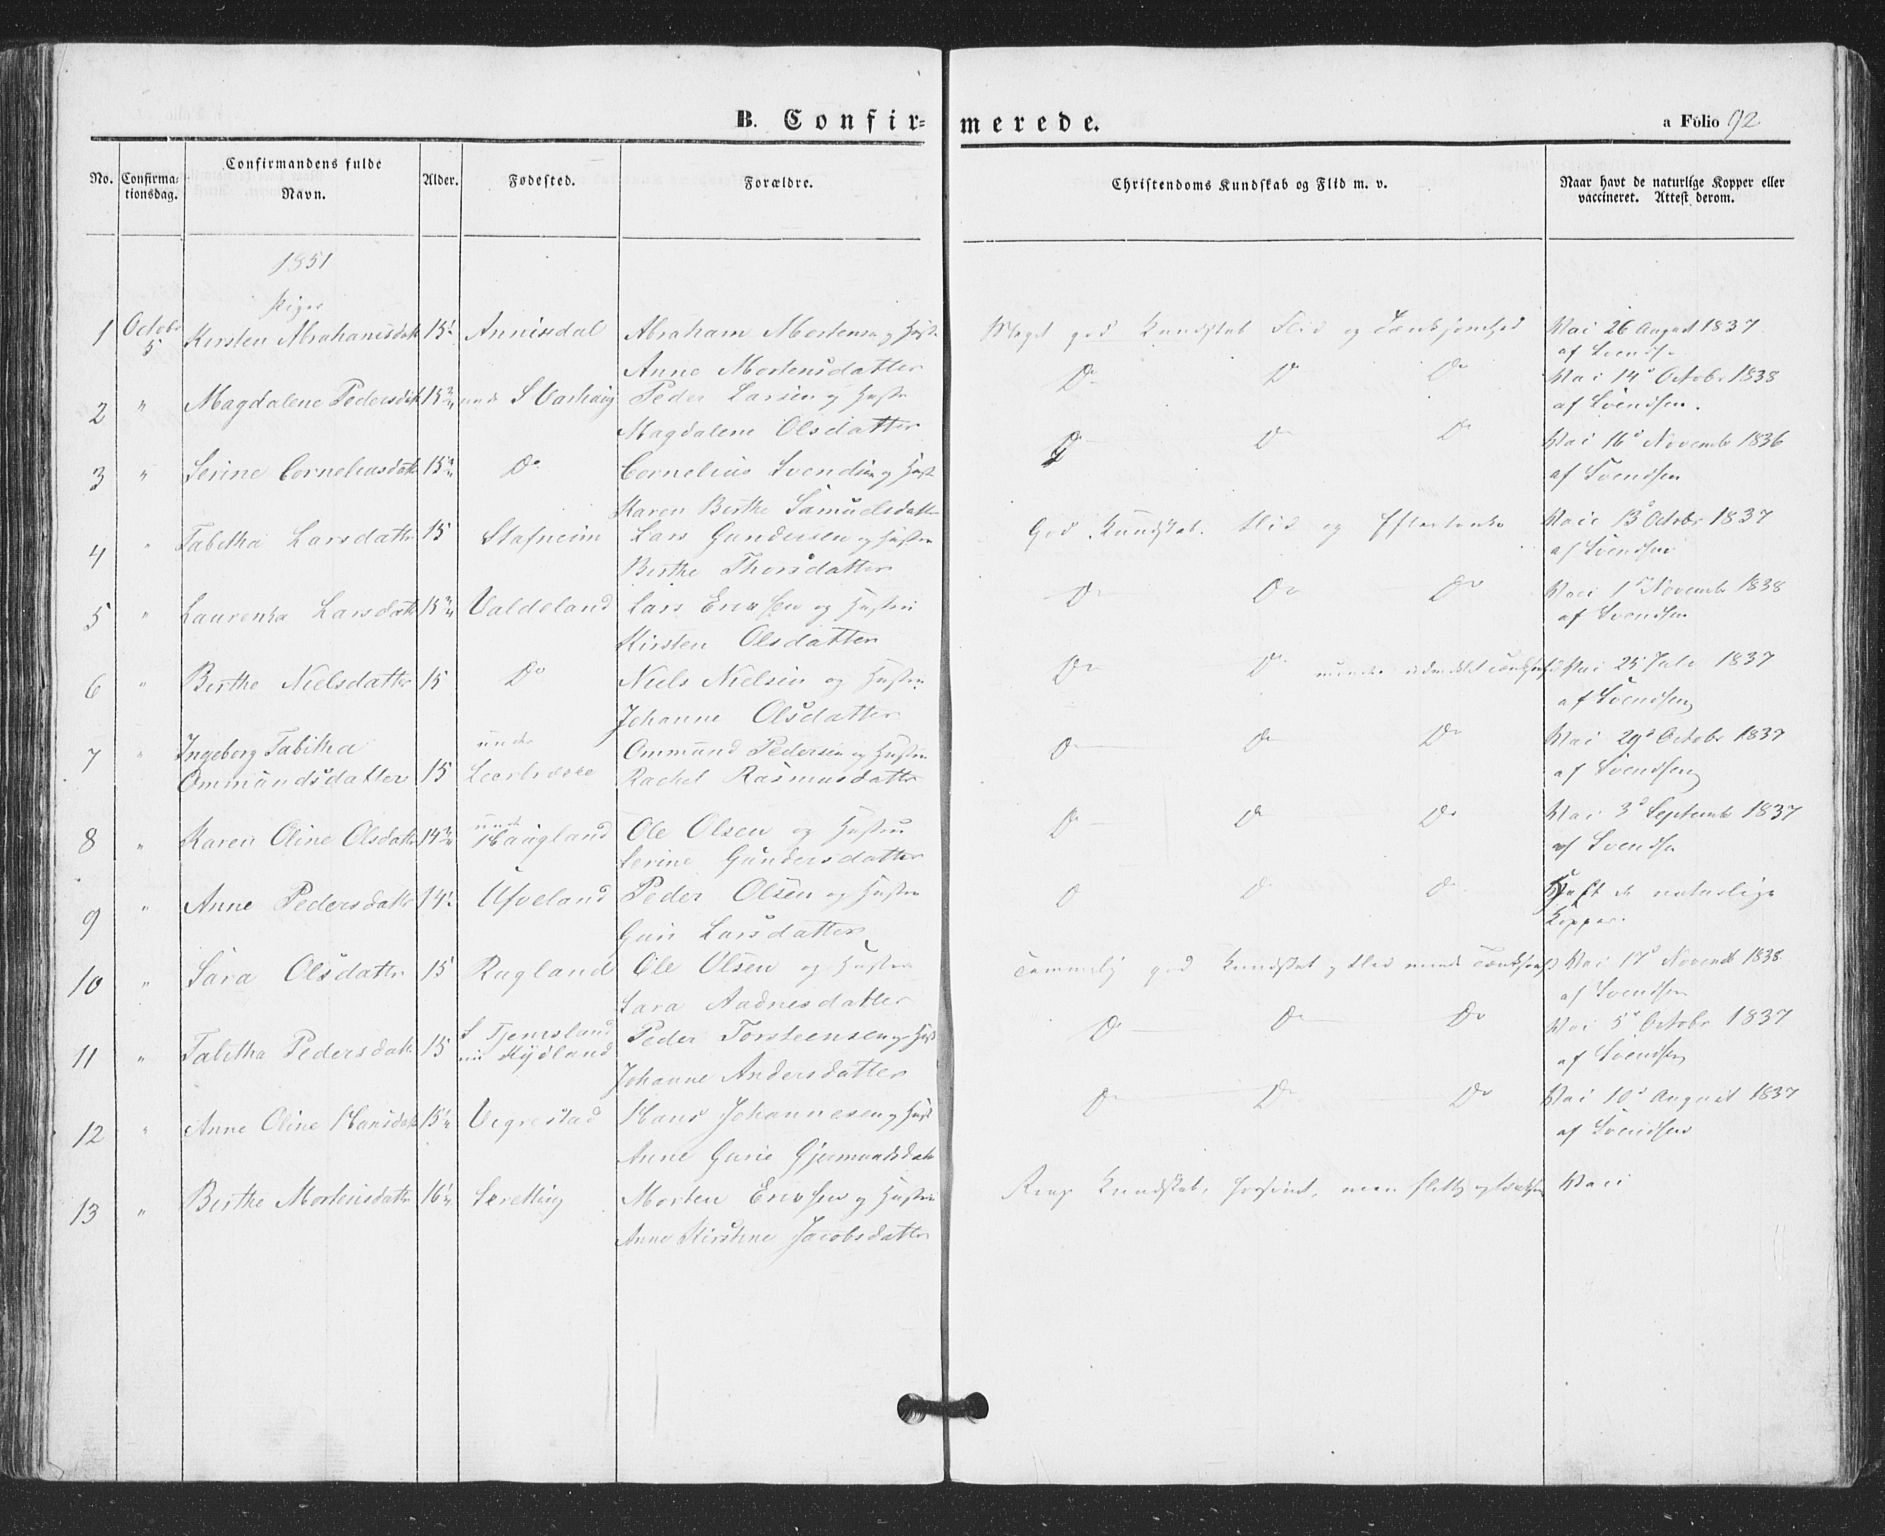 B. Confir= merede.
a Folio 92
No.
Confirma=
tionsdag.
Confirmandens fulde
Navn.
Alder.
Fødested.
Forældre.
Christendoms Kundskab og Flid m. v.
Naar havt de naturlige Kopper eller
vaccineret. Attest derom.
1851
Piger
1 Octobr 5 Kirsten Abrahamsdatt 15½ Annisdal Abraham Mortensen og Hustr Meget god Kundskab Flid og Tænksomhed Vac 26 August 1837
Anne Mortensdatter af Svends
2 " Magdalene Pedersdatt 15¾ S Varhaug Peder Larsen og Hustr Do Do Do Vac 14d Octobr 1838
Magdalene Olsdatter af Svendsen.
3 " Serine Corneliusdatt 15¾ Do Cornelius Svendsen og Hust Do Do Do Vac 16d Novembr 1836
Karen Berthe Samuelsdatter af Svendsen
4 " Tabitha Larsdattr 15 Stafneim Lars Gundersen og Hustru God Kundskab. Flid og Eftertanke Vac 13d Octobr 1837
Berthe Thorsdatter af Svendsen
5 " Laurentsa Larsdatt 15¾ Valdeland Lars Eriksen og Hustru Do Do Do Vac 1 Novembr 1838
Kirsten Olsdatter af Svendsen
6 " Berthe Nielsdatter 15 Do Niels Nielsen og Hustru Do Do mindre Vac 25 Juli 1837
Johanne Olsdatter af Svendsen
7 " Ingeborg Tabitha under Ommund Pedersen og Hustru Do Do Do Vac 29d Octobr 1837
Ommundsdatter 15 Rachel Rasmusdatter af Svendsen
8 " Karen Oline Olsdatt 14¾ under Haugland Ole Olsen og Hustru Do Do Do Vac 3d Septembr 1837
Serine Gundersdatter af Svendsen
9 " Anne Pedersdattr 14½ Ufveland Peder Olsen og Hustru Do Do Do Havt de naturlige
Guri Larsdatter Kopper.
10 " Sara Olsdattr 15 Ragland Ole Olsen og Hustru Temmelig god Kundskab og Flid Vac 17d Novemb 1838
Sara Aadnesdatter af Svendsen
11 " Tabitha Pedersdatt 15 S Tjemsland Peder Torsteensen og Hust Do Do Do Vac 5d Octobr 1837
Hydland Johanne Andersdatter af Svendsen
12 " Anne Oline Hansdatt 15¼ Vigrestad Hans Johannesen og Hust Do Do Do Vac 10d August 1837
Anne Gurie Gjermundsdatt af Svendsen
13 " Berthe Mortensdatter 16¼ Sretting Morten Eriksen og Hustru Kundskab, men flittig Vac
Anne Kirstine Jacobsdatter